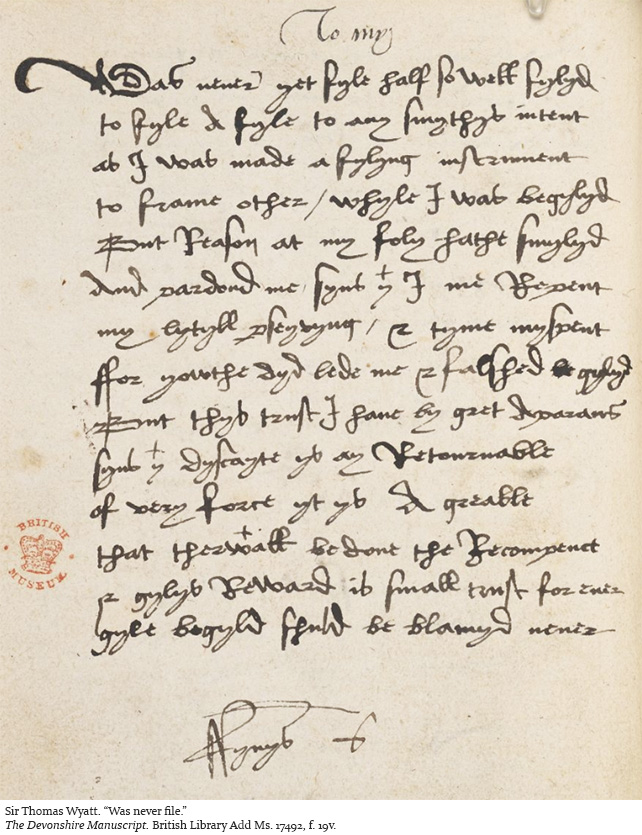 To my
Was never yet fyle half so well fylyd
to fyle A fyle to any smythys intent
as I was made a fylyng instrument
to frame other / whyle I was begylyd
But Reason at my foly hathe smylyd
And pardond me syns yt I me Repent
my lytyll pseyvyng / & tyme myspent
ffor yowthe dyd lede me & falshed be gylyd
But thys trust I have by gret Aparans
syns yt dyscayte ys ay Retournable
of very force yt ys A greable
that therwtall be done the Recompence
gylys Reward is small trust for ever
gyle begyld shuld be blamyd never
ffynys
BRITISH MUSEUM
Sir Thomas Wyatt. “Was never file.”
The Devonshire Manuscript. British Library Add Ms. 17492, f. 19v.